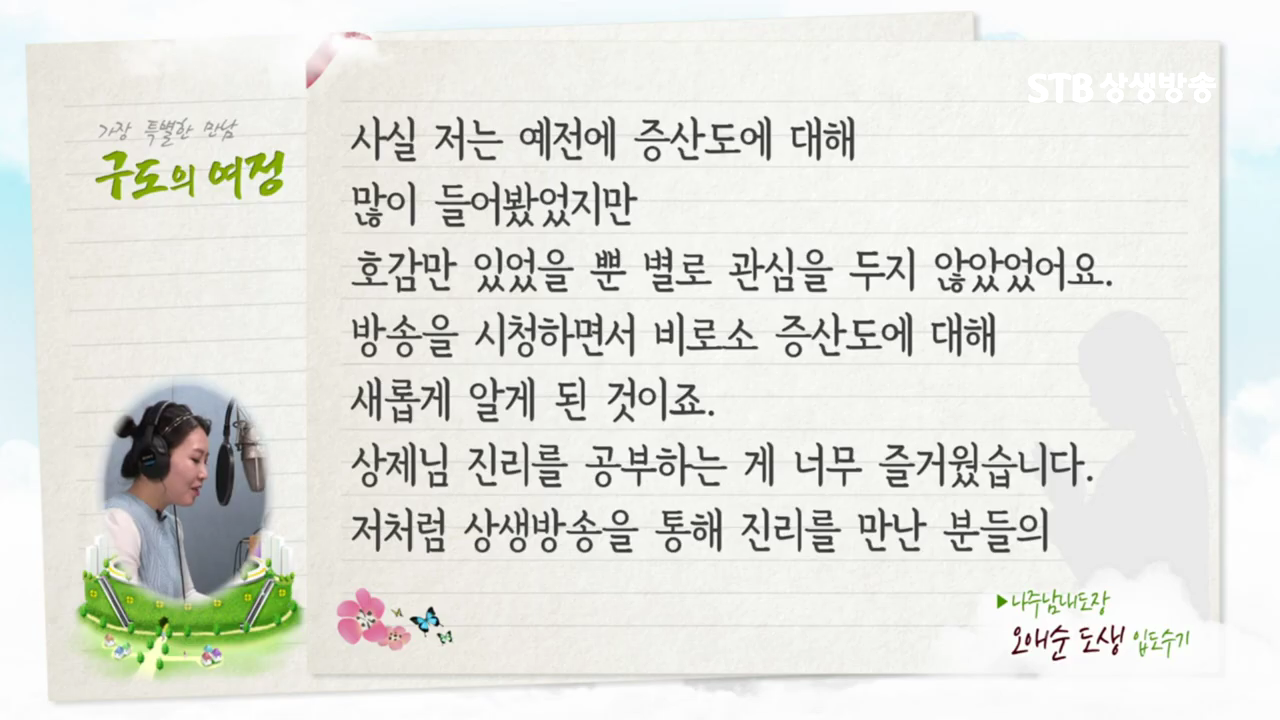 STB 상생방송
가장 특별한 만남
구도의 여정
사실 저는 예전에 증산도에 대해
많이 들어봤었지만
호감만 있었을 뿐 별로 관심을 두지 않았었어요.
방송을 시청하면서 비로소 증산도에 대해
새롭게 알게 된 것이죠.
상제님 진리를 공부하는 게 너무 즐거웠습니다.
저처럼 상생방송을 통해 진리를 만난 분들의
▶나주남내도장
오애순 도생 입도수기